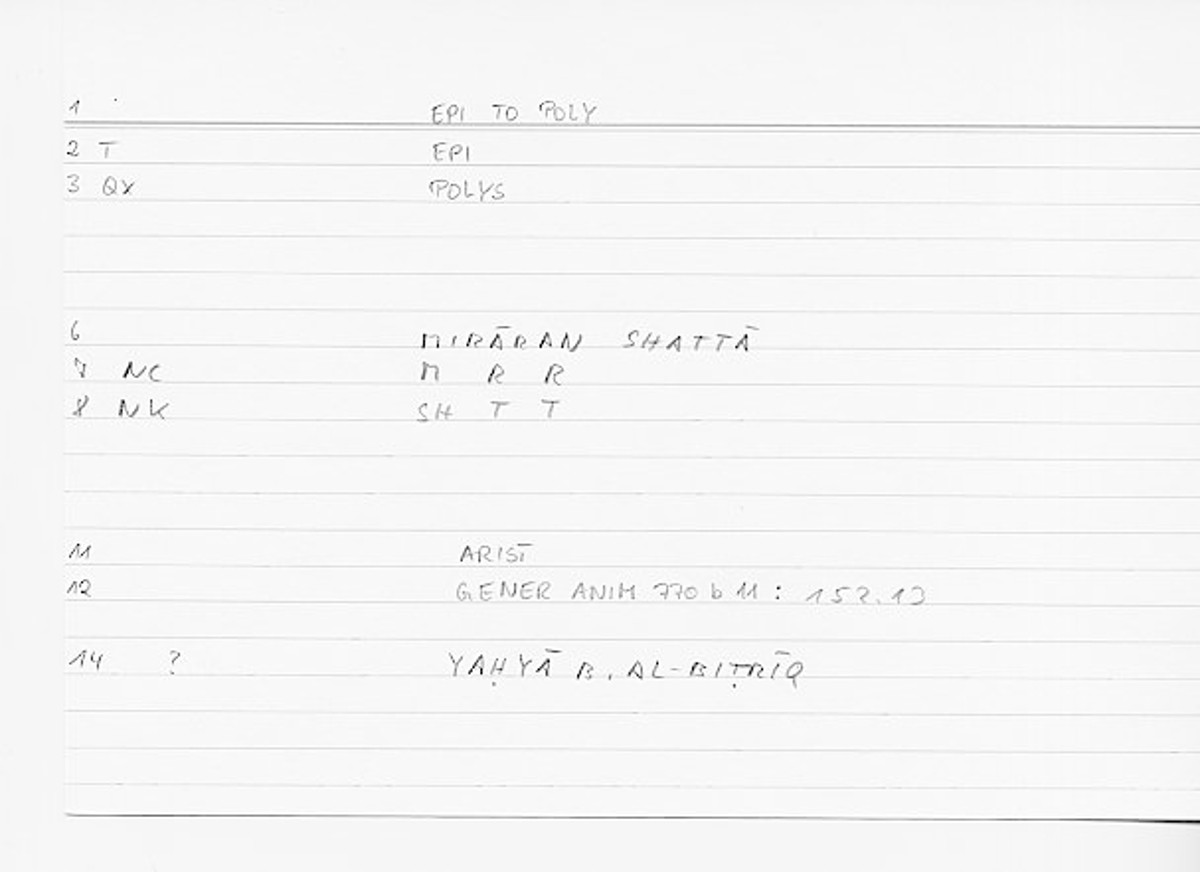 1 EPI TO POLY
2 T EPI
3 Qx POLYS
6 MIRĀRAN SHATTĀ
7 NC M R R
8 NK SH T T
11 ARIST
12 GENER ANIM 770 b 11 : 152.13
14 ? YAḤYĀ B. AL-BIṬRĪQ